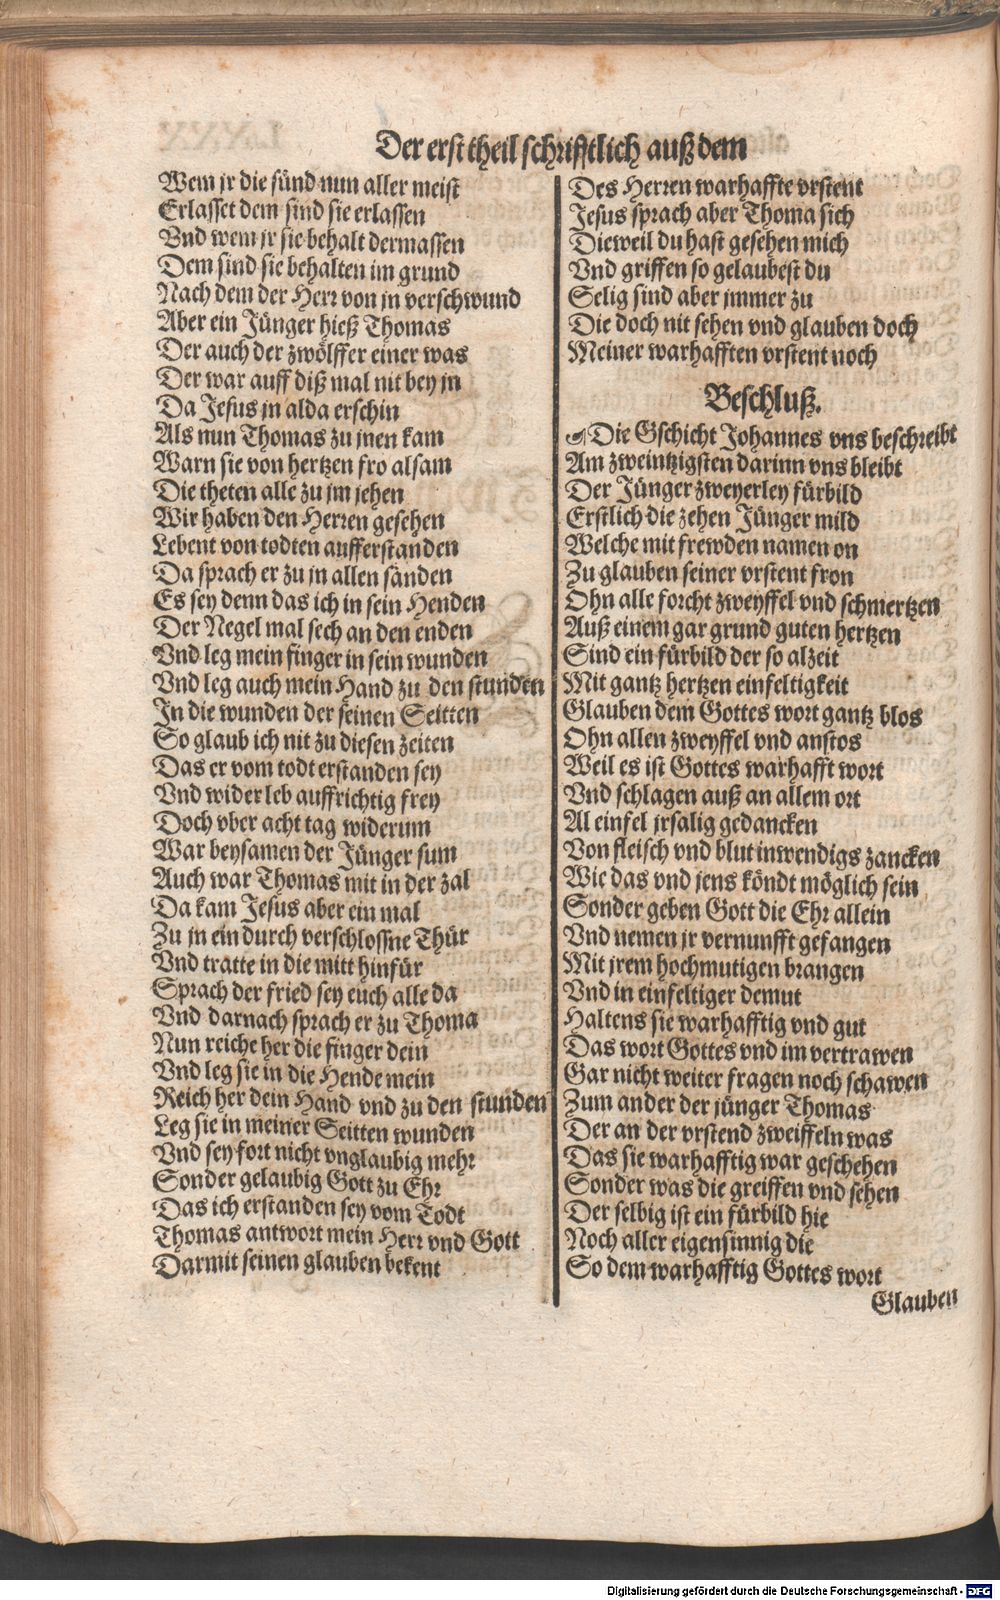 Der erst theil schrifftlich auß dem
Wem jr die sünd nun aller meist
Erlasset dem sind sie erlassen
Vnd wem jr sie behalt dermassen
Dem sind sie behalten im grund
Nach dem der Herr von jn verschwund
Aber ein Jünger hieß Thomas
Der auch der zwölffer einer was
Der war auff diß mal nit bey jn
Da Jesus jn alda erschin
Als nun Thomas zu jnen kam
Warn sie von hertzen fro alsam
Die theten alle zu jm jehen
Wir haben den Herren gesehen
Lebent von todten aufferstanden
Da sprach er zu jn allen sanden
Es sey denn das ich in sein Henden
Der Negel mal sech an den enden
Vnd leg mein finger in sein wunden
Vnd leg auch mein Hand zu den stunden
In die wunden der seinen Seitten
So glaub ich nit zu diesen zeiten
Das er vom todt erstanden sey
Vnd wider leb auffrichtig frey
Doch vber acht tag widerum
War beysamen der Jünger sum
Auch war Thomas mit in der zal
Da kam Jesus aber ein mal
Zu jn ein durch verschlossne Thür
Vnd tratte in die mitt hinfür
Sprach der fried sey euch alle da
Vnd darnach sprach er zu Thoma
Nun reiche her die finger dein
Vnd leg sie in die Hende mein
Reich her dein Hand vnd zu den stunden
Leg sie in meiner Seitten wunden
Vnd sey fort nicht vnglaubig mehr
Sonder gelaubig Gott zu Ehr
Das ich erstanden sey vom Todt
Thomas antwort mein Herr vnd Gott
Darmit seinen glauben bekent
Des Herren warhaffte vrstent
Jesus sprach aber Thoma sich
Dieweil du hast gesehen mich
Vnd griffen so gelaubest du
Selig sind aber jmmer zu
Die doch nit sehen vnd glauben doch
Meiner warhafften vrstent noch
Beschluß.
Die Gschicht Johannes vns beschreibt
Am zweintzigsten darinn vns bleibt
Der Jünger zweyerley fürbild
Erstlich die zehen Jünger mild
Welche mit frewden namen on
Zu glauben seiner vrstent fron
Ohn alle forcht zweyffel vnd schmertzen
Auß einem gar grund guten hertzen
Sind ein fürbild der so alzeit
Mit gantz hertzen einfeltigkeit
Glauben dem Gottes wort gantz blos
Ohn allen zweyffel vnd anstos
Weil es ist Gottes warhafft wort
Vnd schlagen auß an allem ort
Al einfel jrsalig gedancken
Von fleisch vnd blut inwendigs zancken
Wie das vnd jens köndt möglich sein
Sonder geben Gott die Ehr allein
Vnd nemen jr vernunfft gefangen
Mit jrem hochmutigen brangen
Vnd in einfeltiger demut
Haltens sie warhafftig vnd gut
Das wort Gottes vnd im vertrawen
Gar nicht weiter fragen noch schawen
Zum ander der jünger Thomas
Der an der vrstend zweiffeln was
Das sie warhafftig war geschehen
Sonder was die greiffen vnd sehen
Der selbig ist ein fürbild hie
Noch aller eigensinnig die
So dem warhafftig Gottes wort
Glauben
Digitalisierung gefördert durch die Deutsche Forschungsgemeinschaft - DFG